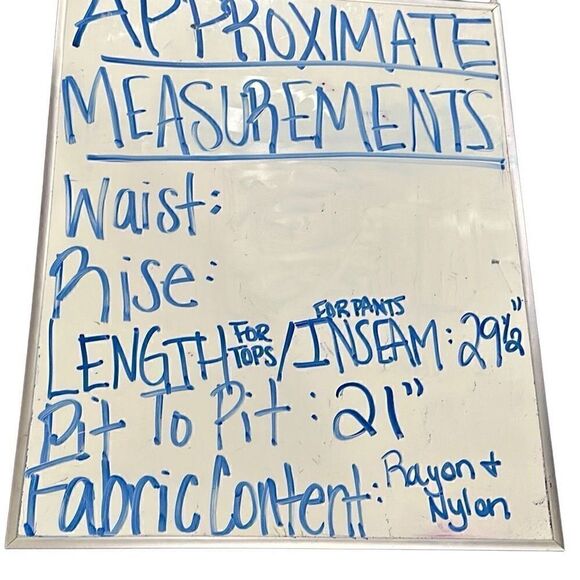 APPROXIMATE
MEASUREMENTS
Waist:
Rise:
LENGTH FOR TOPS / INSEAM FOR PANTS : 29 1/2"
Pit To Pit : 21"
Fabric Content: Rayon + Nylon